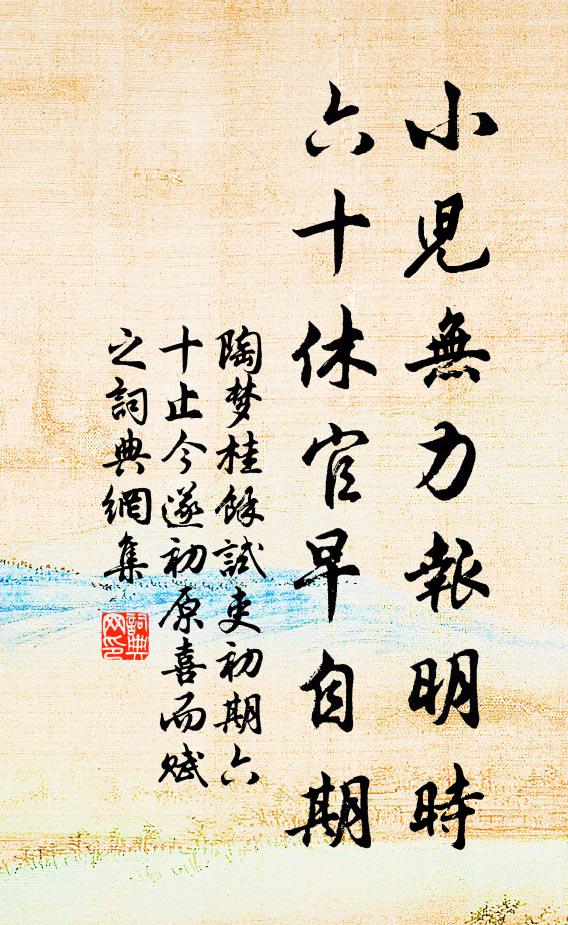 小児無力報明時
六十休官早自期
陶梦桂餘試吏初期六
十止今遂初原喜而赋
之詞典網集
詞典
网印